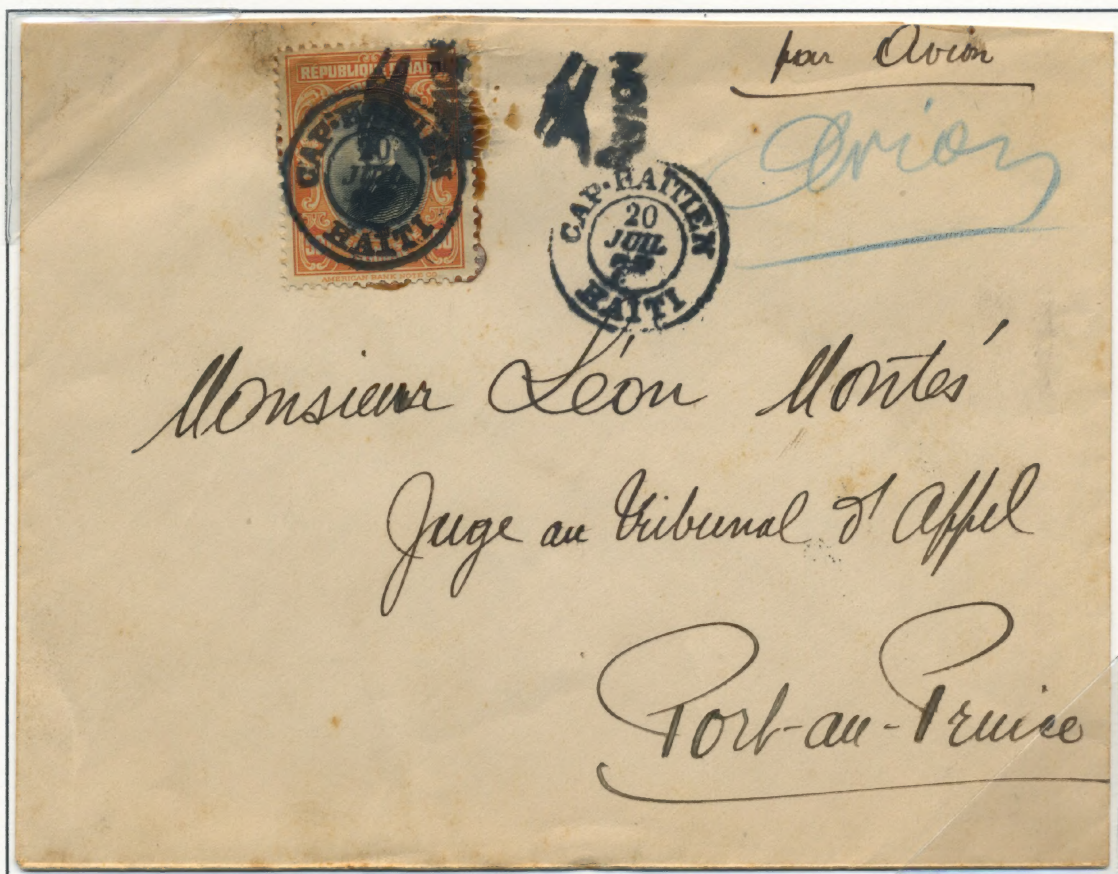 par Avion
Avion
RÉPUBLIQUE D'HAITI
CAP-HAITIEN
20
JUIL
HAITI
AMERICAN BANK NOTE CO.
CAP-HAITIEN
20
JUIL
HAITI
Monsieur Léon Montés
Juge au Tribunal d'Appel
Port-au-Prince